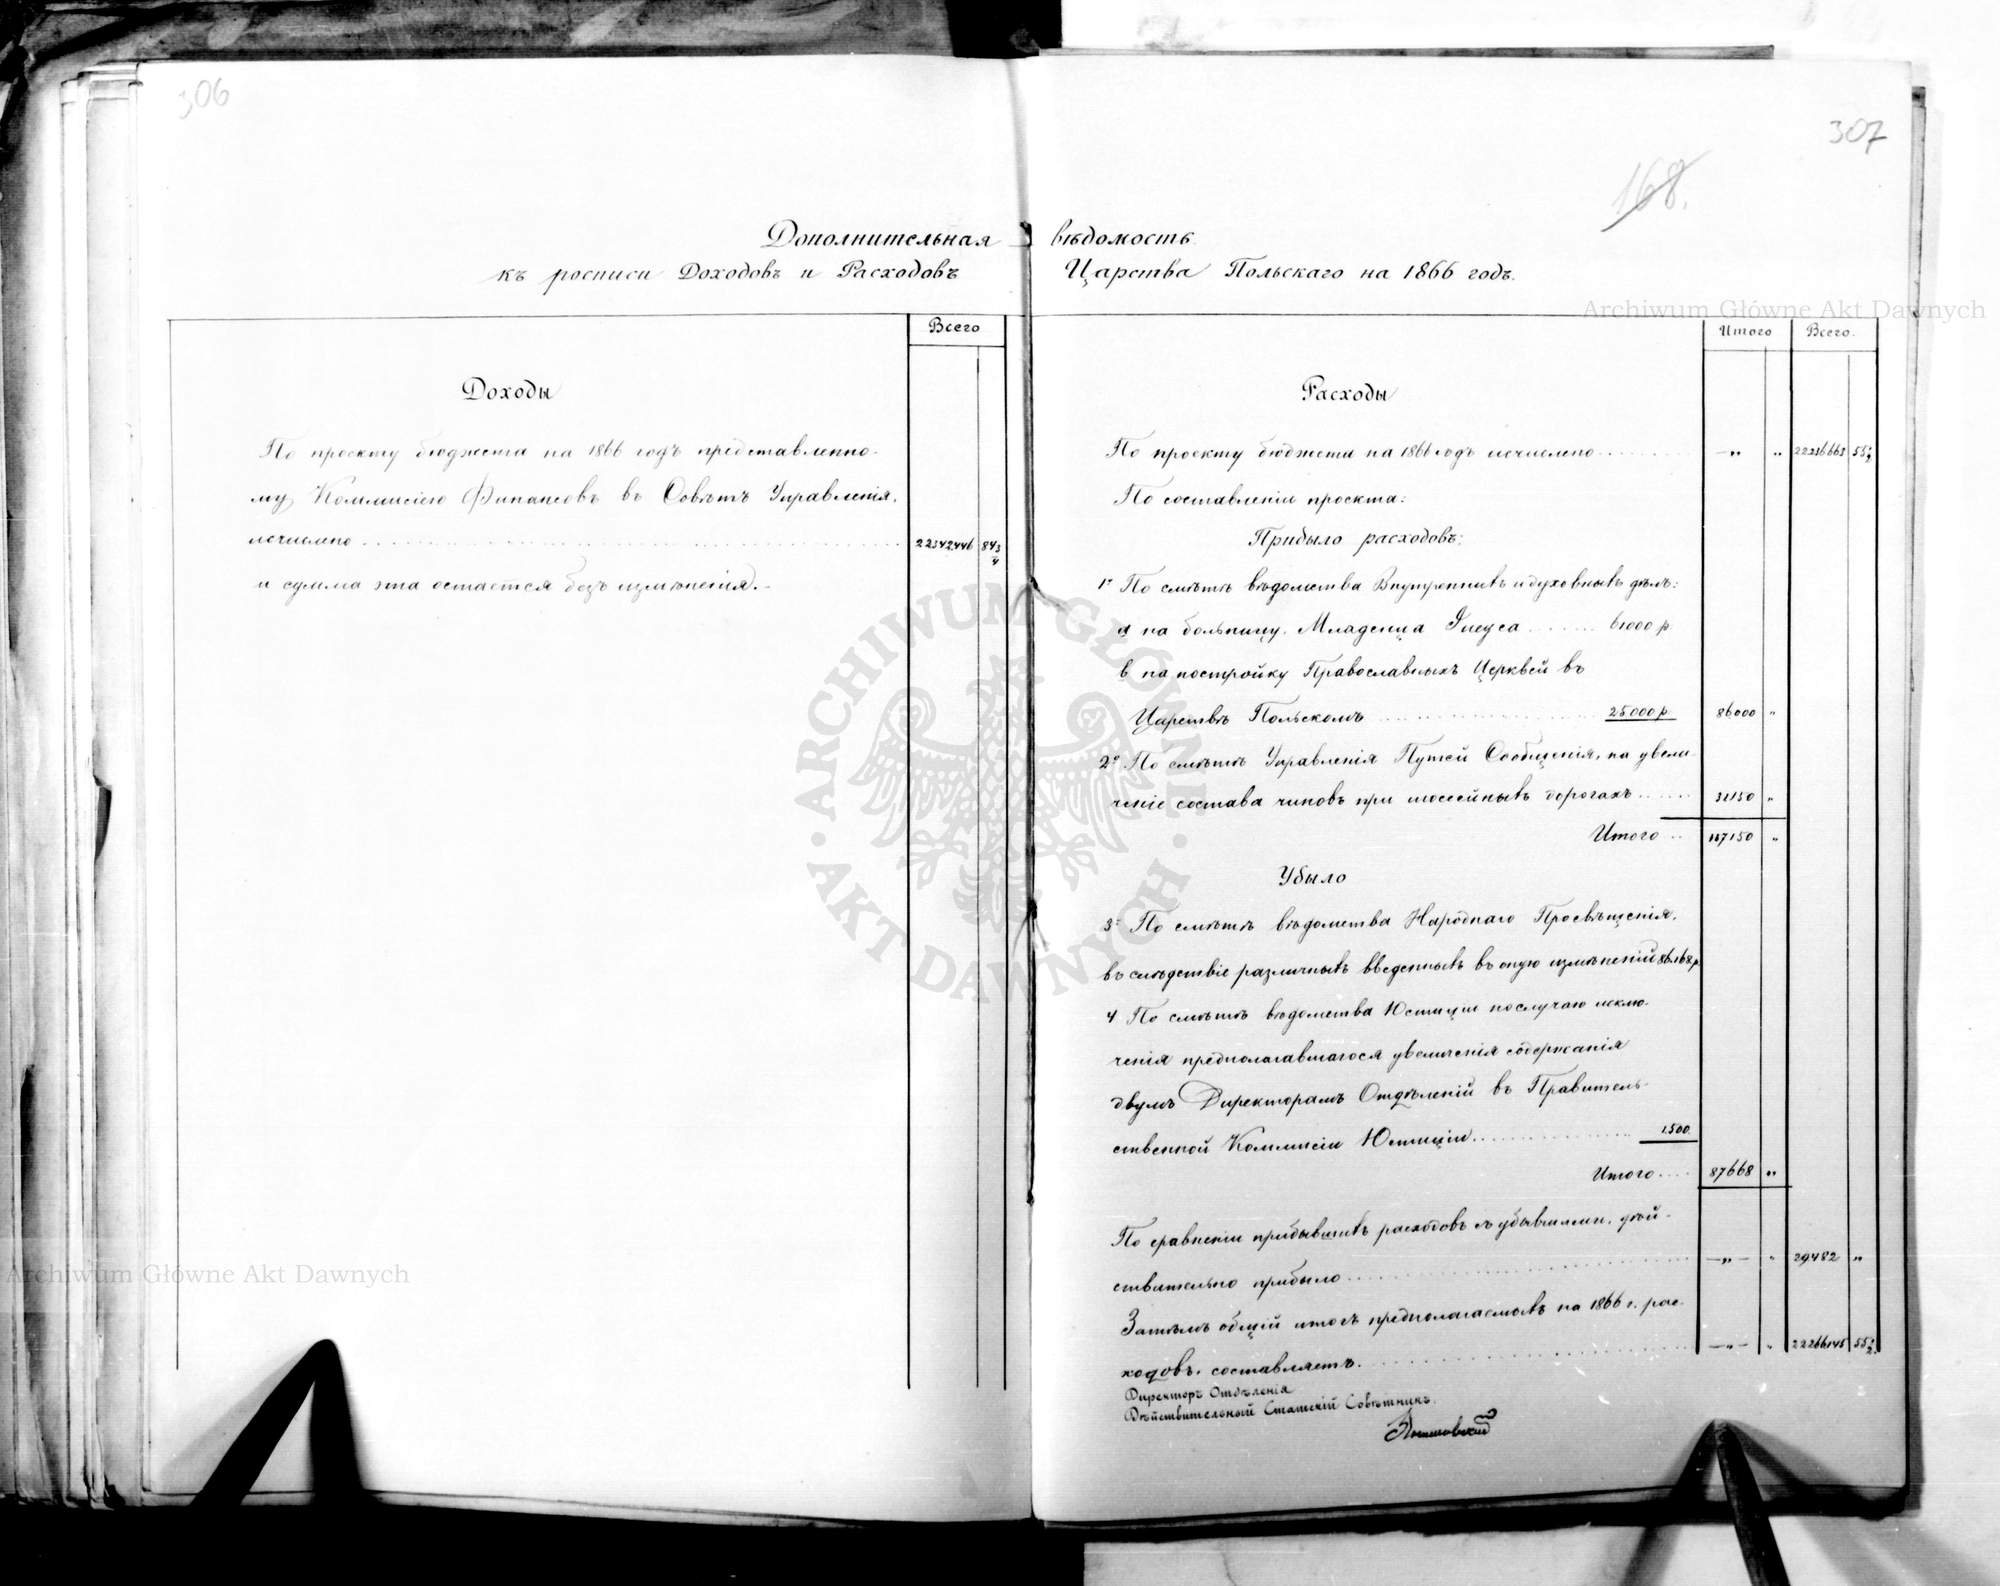 306
307
168.
Дополнительная вѣдомость
къ росписи Доходовъ и Расходовъ Царства Польскаго на 1866 годъ.
Всего
Доходы
По проекту бюджета на 1866 годъ представленно-
му Коммисіею Финансовъ въ Совѣтъ Управленія,
исчислено 22342446 84 3/4
и сумма эта остается безъ измѣненія.-
Итого Всего.
Расходы
По проекту бюджета на 1866 годъ исчислено -„ „ 22236663 55 1/2
По составленіи проекта:
Прибыло расходовъ:
1º По смѣтѣ вѣдомства Внутреннихъ и духовныхъ дѣлъ:
а на больницу Младенца Іисуса 61000 р.
в на постройку Православныхъ Церквей въ
Царствѣ Польскомъ 25.000 р. 86000 „
2º По смѣтѣ Управленія Путей Сообщенія, на увели-
ченіе состава чиновъ при шоссейныхъ дорогахъ 31150 „
Итого 117150 „
Убыло
3º По смѣтѣ вѣдомства Народнаго Просвѣщенія,
въ слѣдствіе различныхъ введенныхъ въ оную измѣненій 86.168 р.
4 По смѣтѣ вѣдомства Юстиціи по случаю исклю-
ченія предполагавшагося увеличенія содержанія
двумъ Директорамъ Отдѣленій въ Правитель-
ственной Коммисіи Юстиціи 1.500
Итого 87668 „
По сравненіи прибывшихъ расходовъ съ убывшими, дѣй-
ствительно прибыло -„- „ 29482 „
Затѣмъ общій итогъ предполагаемыхъ на 1866 г. рас-
ходовъ, составляетъ -„- „ 22266145 55 1/2
Директоръ Отдѣленія
Дѣйствительный Статскій Совѣтникъ.
Archiwum Główne Akt Dawnych
Archiwum Główne Akt Dawnych
· ARCHIWUM GŁÓWNE · AKT DAWNYCH ·